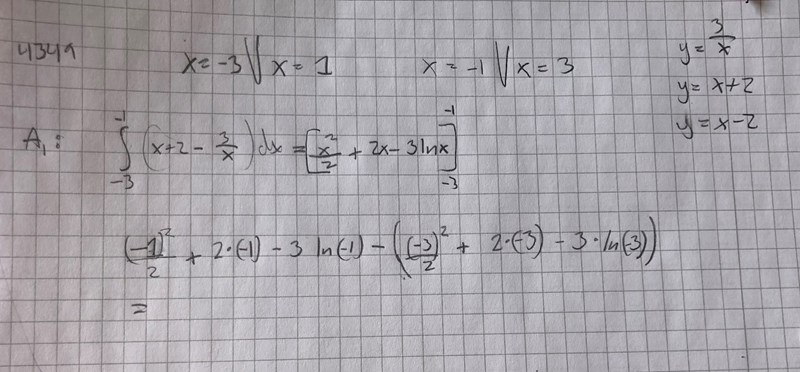 4349 x = -3 ∨ x = 1 x = -1 ∨ x = 3 y = 3/x
y = x+2
y = x-2
A₁: ∫₋₃⁻¹ (x+2 - 3/x) dx = [x²/2 + 2x - 3 ln x]₋₃⁻¹
(-1)²/2 + 2·(-1) - 3 ln(-1) - ((-3)²/2 + 2·(-3) - 3·ln(-3))
=